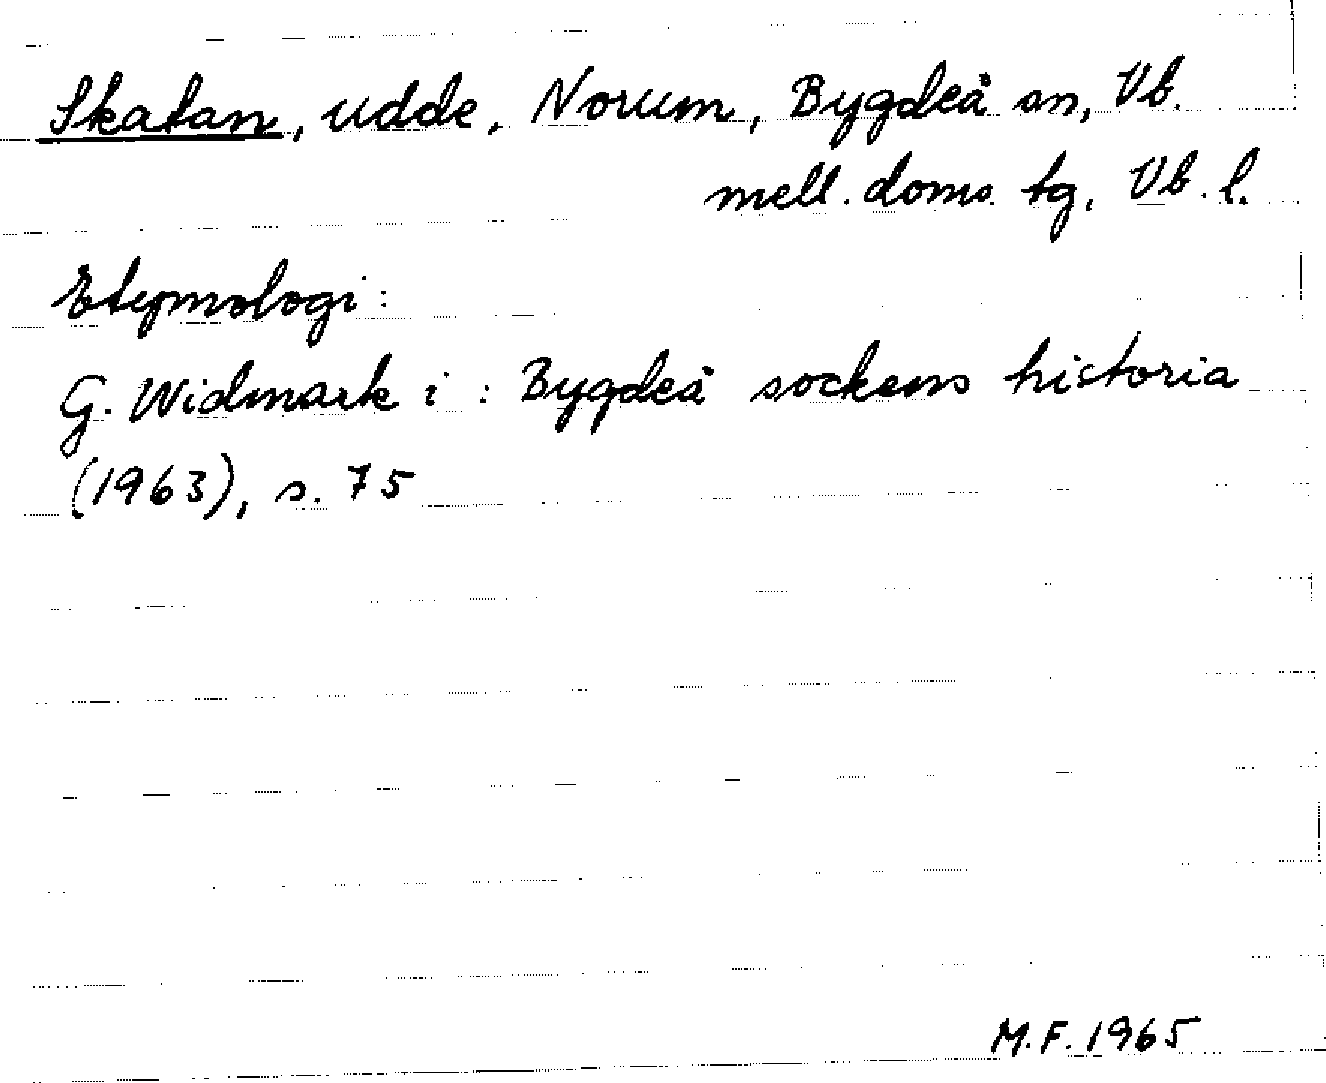 Skatan, udde, Norum, Bygdeå sn, Vb.
mell. doms. tg, Vb. l.
Etymologi:
G. Widmark i: Bygdeå sockens historia
(1963), s. 75
M.F. 1965